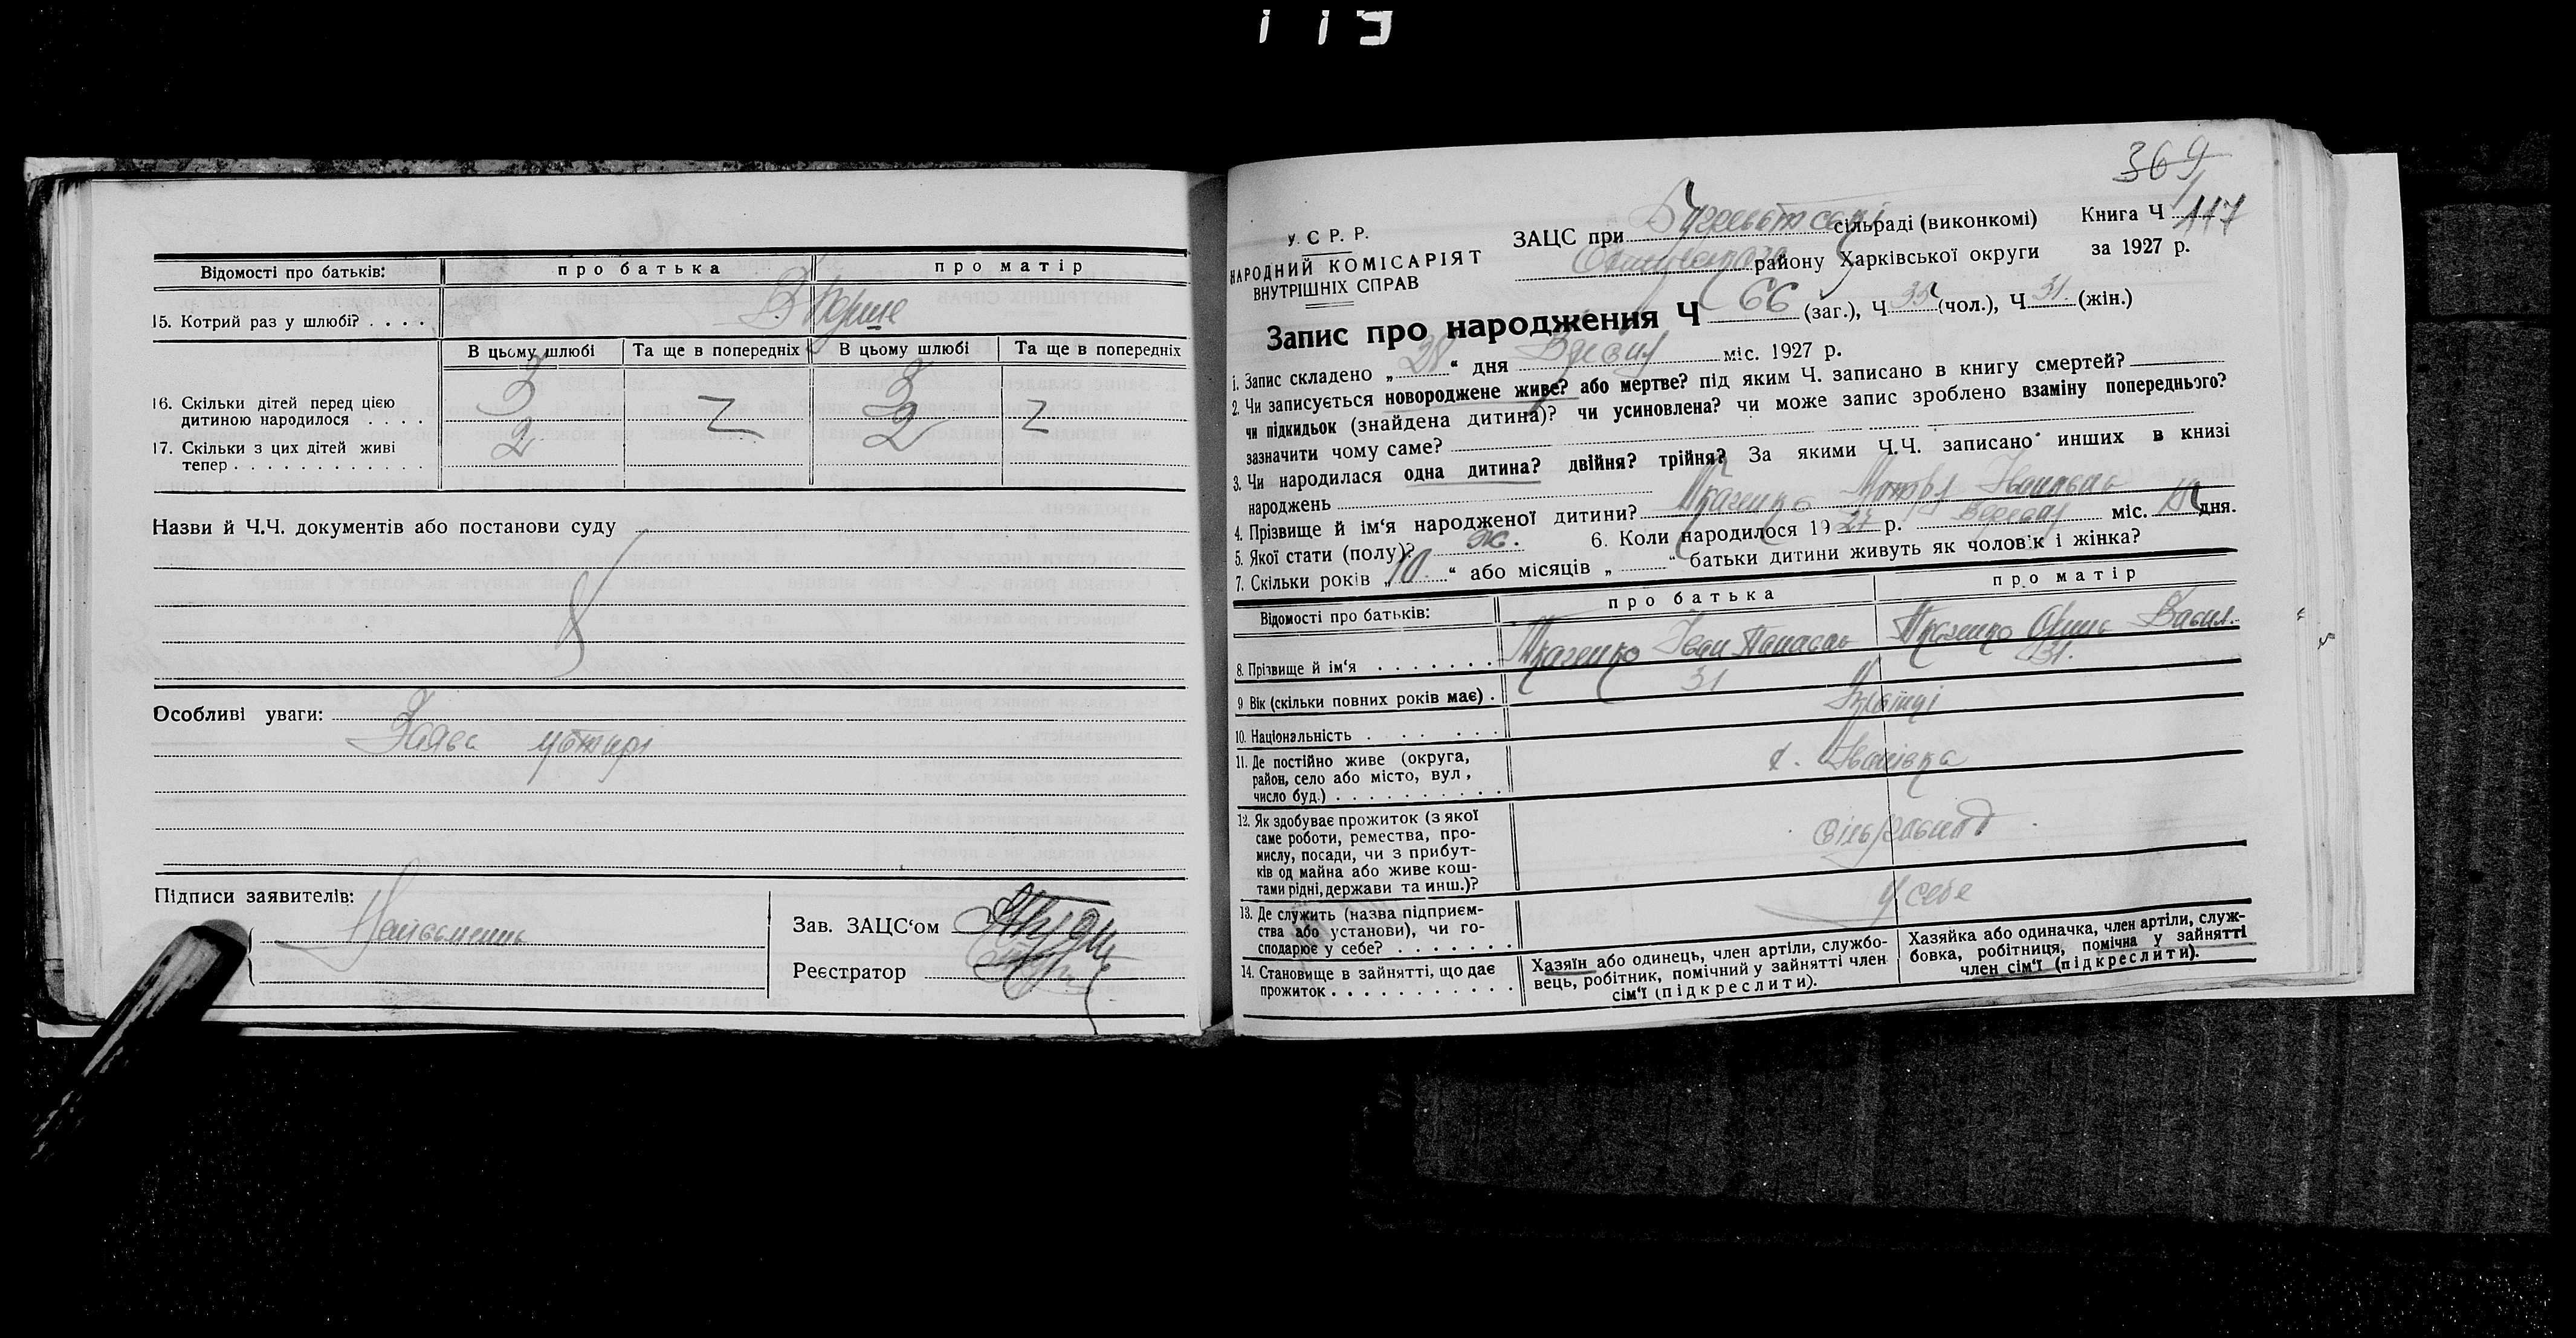 119
Відомості про батьків: про батька про матір
15. Котрий раз у шлюбі? . . . . Вперше
В цьому шлюбі Та ще в попередніх В цьому шлюбі Та ще в попередніх
16. Скільки дітей перед цією
дитиною народилося . . . . 3 Z 3 Z
17. Скільки з цих дітей живі
тепер . . . . . . . . . . . . 2 2
Назви й Ч.Ч. документів або постанови суду
Особливі уваги:
Заява
Підписи заявителів:
Зав. ЗАЦС‘ом
Реєстратор
369
117
У. С. Р. Р.
НАРОДНИЙ КОМІСАРІЯТ
ВНУТРІШНІХ СПРАВ
ЗАЦС при сільраді (виконкомі) Книга Ч
району Харківської округи за 1927 р.
Запис про народження Ч 66 (заг.), Ч 35 (чол.), Ч 31 (жін.)
1. Запис складено „ 28 “ дня міс. 1927 р.
2. Чи записується новороджене живе? або мертве? під яким Ч. записано в книгу смертей?
чи підкидьок (знайдена дитина)? чи усиновлена? чи може запис зроблено взаміну попереднього?
зазначити чому саме?
3. Чи народилася одна дитина? двійня? трійня? За якими Ч.Ч. записано инших в книзі
народжень
4. Прізвище й ім‘я народженої дитини? Ткаченко Мотря Іванівна
5. Якої стати (полу)? ж. 6. Коли народилося 1927 р. міс. дня.
7. Скільки років „ 10 “ або місяців „ “ батьки дитини живуть як чолов‘к і жінка?
Відомості про батьків: про батька про матір
8. Прізвище й ім‘я . . . . . . . Ткаченко Іван Панасов Ткаченко Васил.
9 Вік (скільки повних років має) . 31 31.
10. Національність . . . . . . Українці
11. Де постійно живе (округа,
район, село або місто, вул,
число буд.) . . . . . . . . . . с. Іванівка
12. Як здобуває прожиток (з якої
саме роботи, ремества, про-
мислу, посади, чи з прибут-
ків од майна або живе кош-
тами рідні, держави та инш.)?
13. Де служить (назва підприєм-
ства або установи), чи го-
сподарює у себе? . . . . . . . у себе
14. Становище в зайнятті, що дає
прожиток . . . . . . . . . . .
Хазяїн або одинець, член артіли, службо-
вець, робітник, помічний у зайнятті член
сім‘ї (підкреслити).
Хазяйка або одиначка, член артіли, служ-
бовка, робітниця, помічна у зайнятті
член сім‘ї (підкреслити).